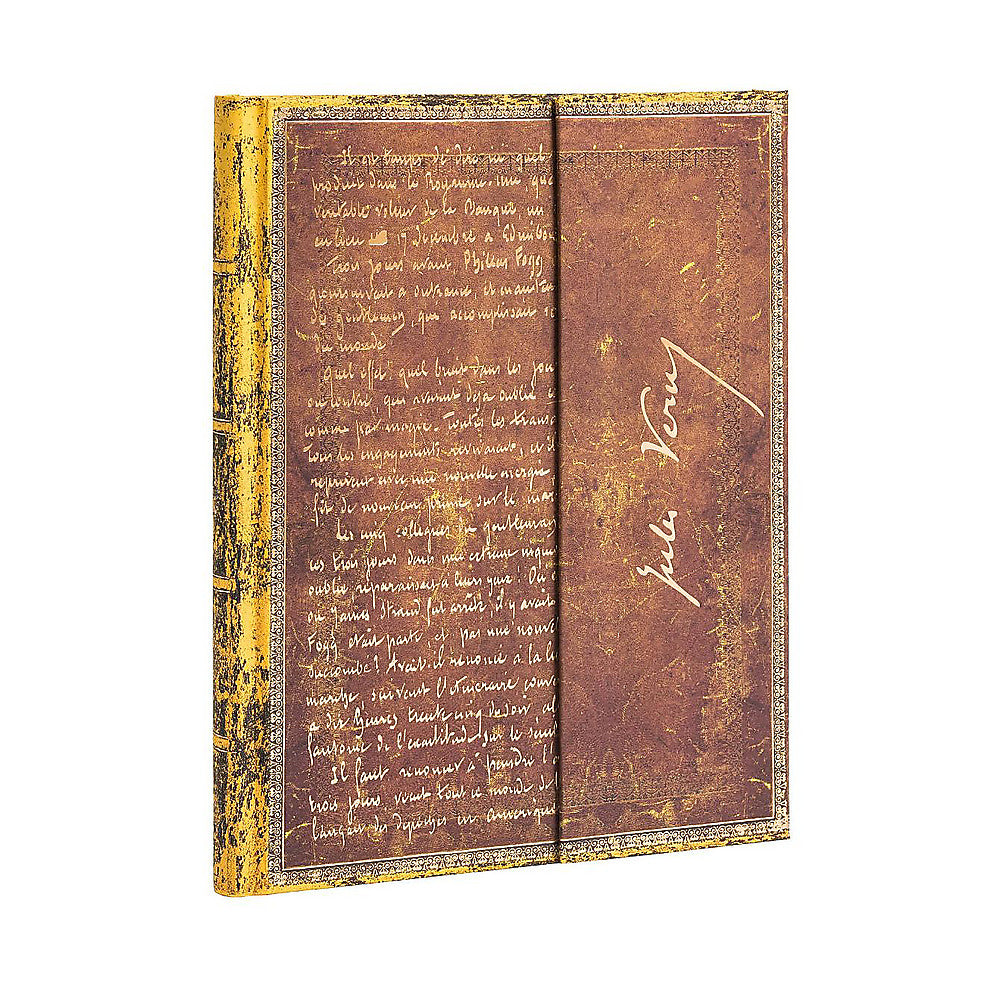 Il est temps de dire ici quel
produit dans le Royaume-Uni, qua
véritable voleur de la Banque, un
eu lieu 17 décembre à Edimbou
Trois jours avant, Philéas Fogg
poursuivait à outrance, et mainten
de gentleman, qui accomplissait
du monde
Quel effet, quel bruit dans les jou
ou contre, qui avaient déjà oublié c
comme par magie. Toutes les transa
tous les engagements revivaient, et
reprirent avec une nouvelle énergie
fit de nouveau prime sur le mar
Les cinq collègues du gentleman
ces trois jours dans une certaine inquié
oublié, reparaissait à leurs yeux! Où
où James Strand fut arrêté, il y avait
Fogg était parti, et pas une nouve
succombé? Avait-il renoncé à la lu
marche suivant l'itinéraire conv
à dix heures trente cinq du soir al
fantôme de l'exactitude sur le seuil
Il faut renoncer à peindre l'
trois jours, vécut tout ce monde de l
lançait des dépêches en Amérique
Jules Verne